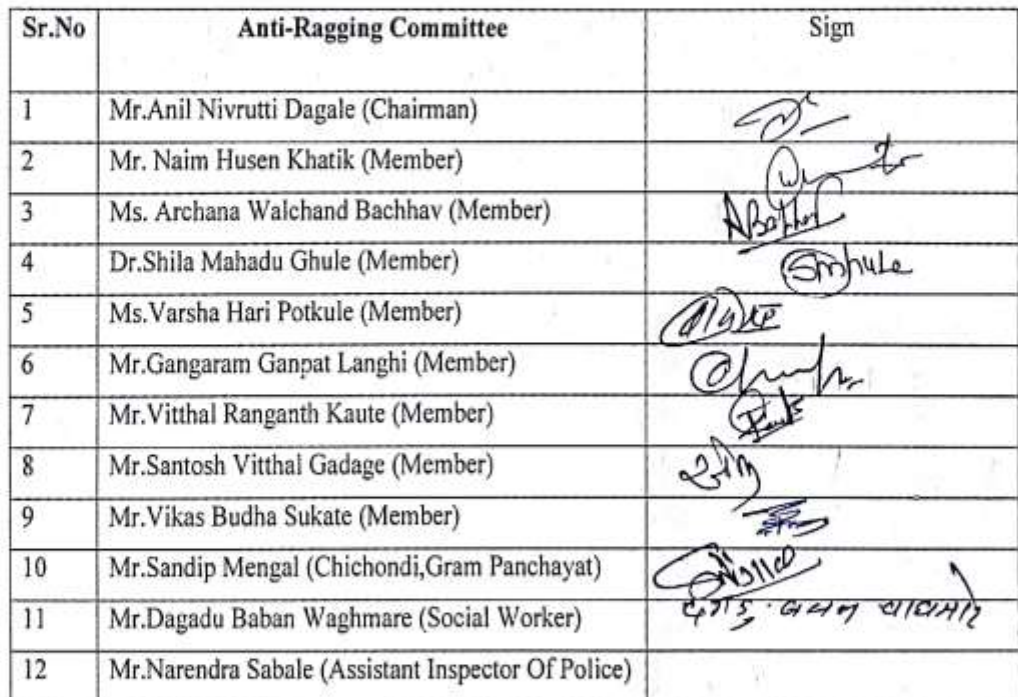 Sr.No Anti-Ragging Committee Sign
1 Mr.Anil Nivrutti Dagale (Chairman)
2 Mr. Naim Husen Khatik (Member)
3 Ms. Archana Walchand Bachhav (Member)
4 Dr.Shila Mahadu Ghule (Member) Smhule
5 Ms.Varsha Hari Potkule (Member)
6 Mr.Gangaram Ganpat Langhi (Member)
7 Mr.Vitthal Ranganth Kaute (Member)
8 Mr.Santosh Vitthal Gadage (Member)
9 Mr.Vikas Budha Sukate (Member)
10 Mr.Sandip Mengal (Chichondi,Gram Panchayat)
11 Mr.Dagadu Baban Waghmare (Social Worker) दगडु बबन वाघमारे
12 Mr.Narendra Sabale (Assistant Inspector Of Police)